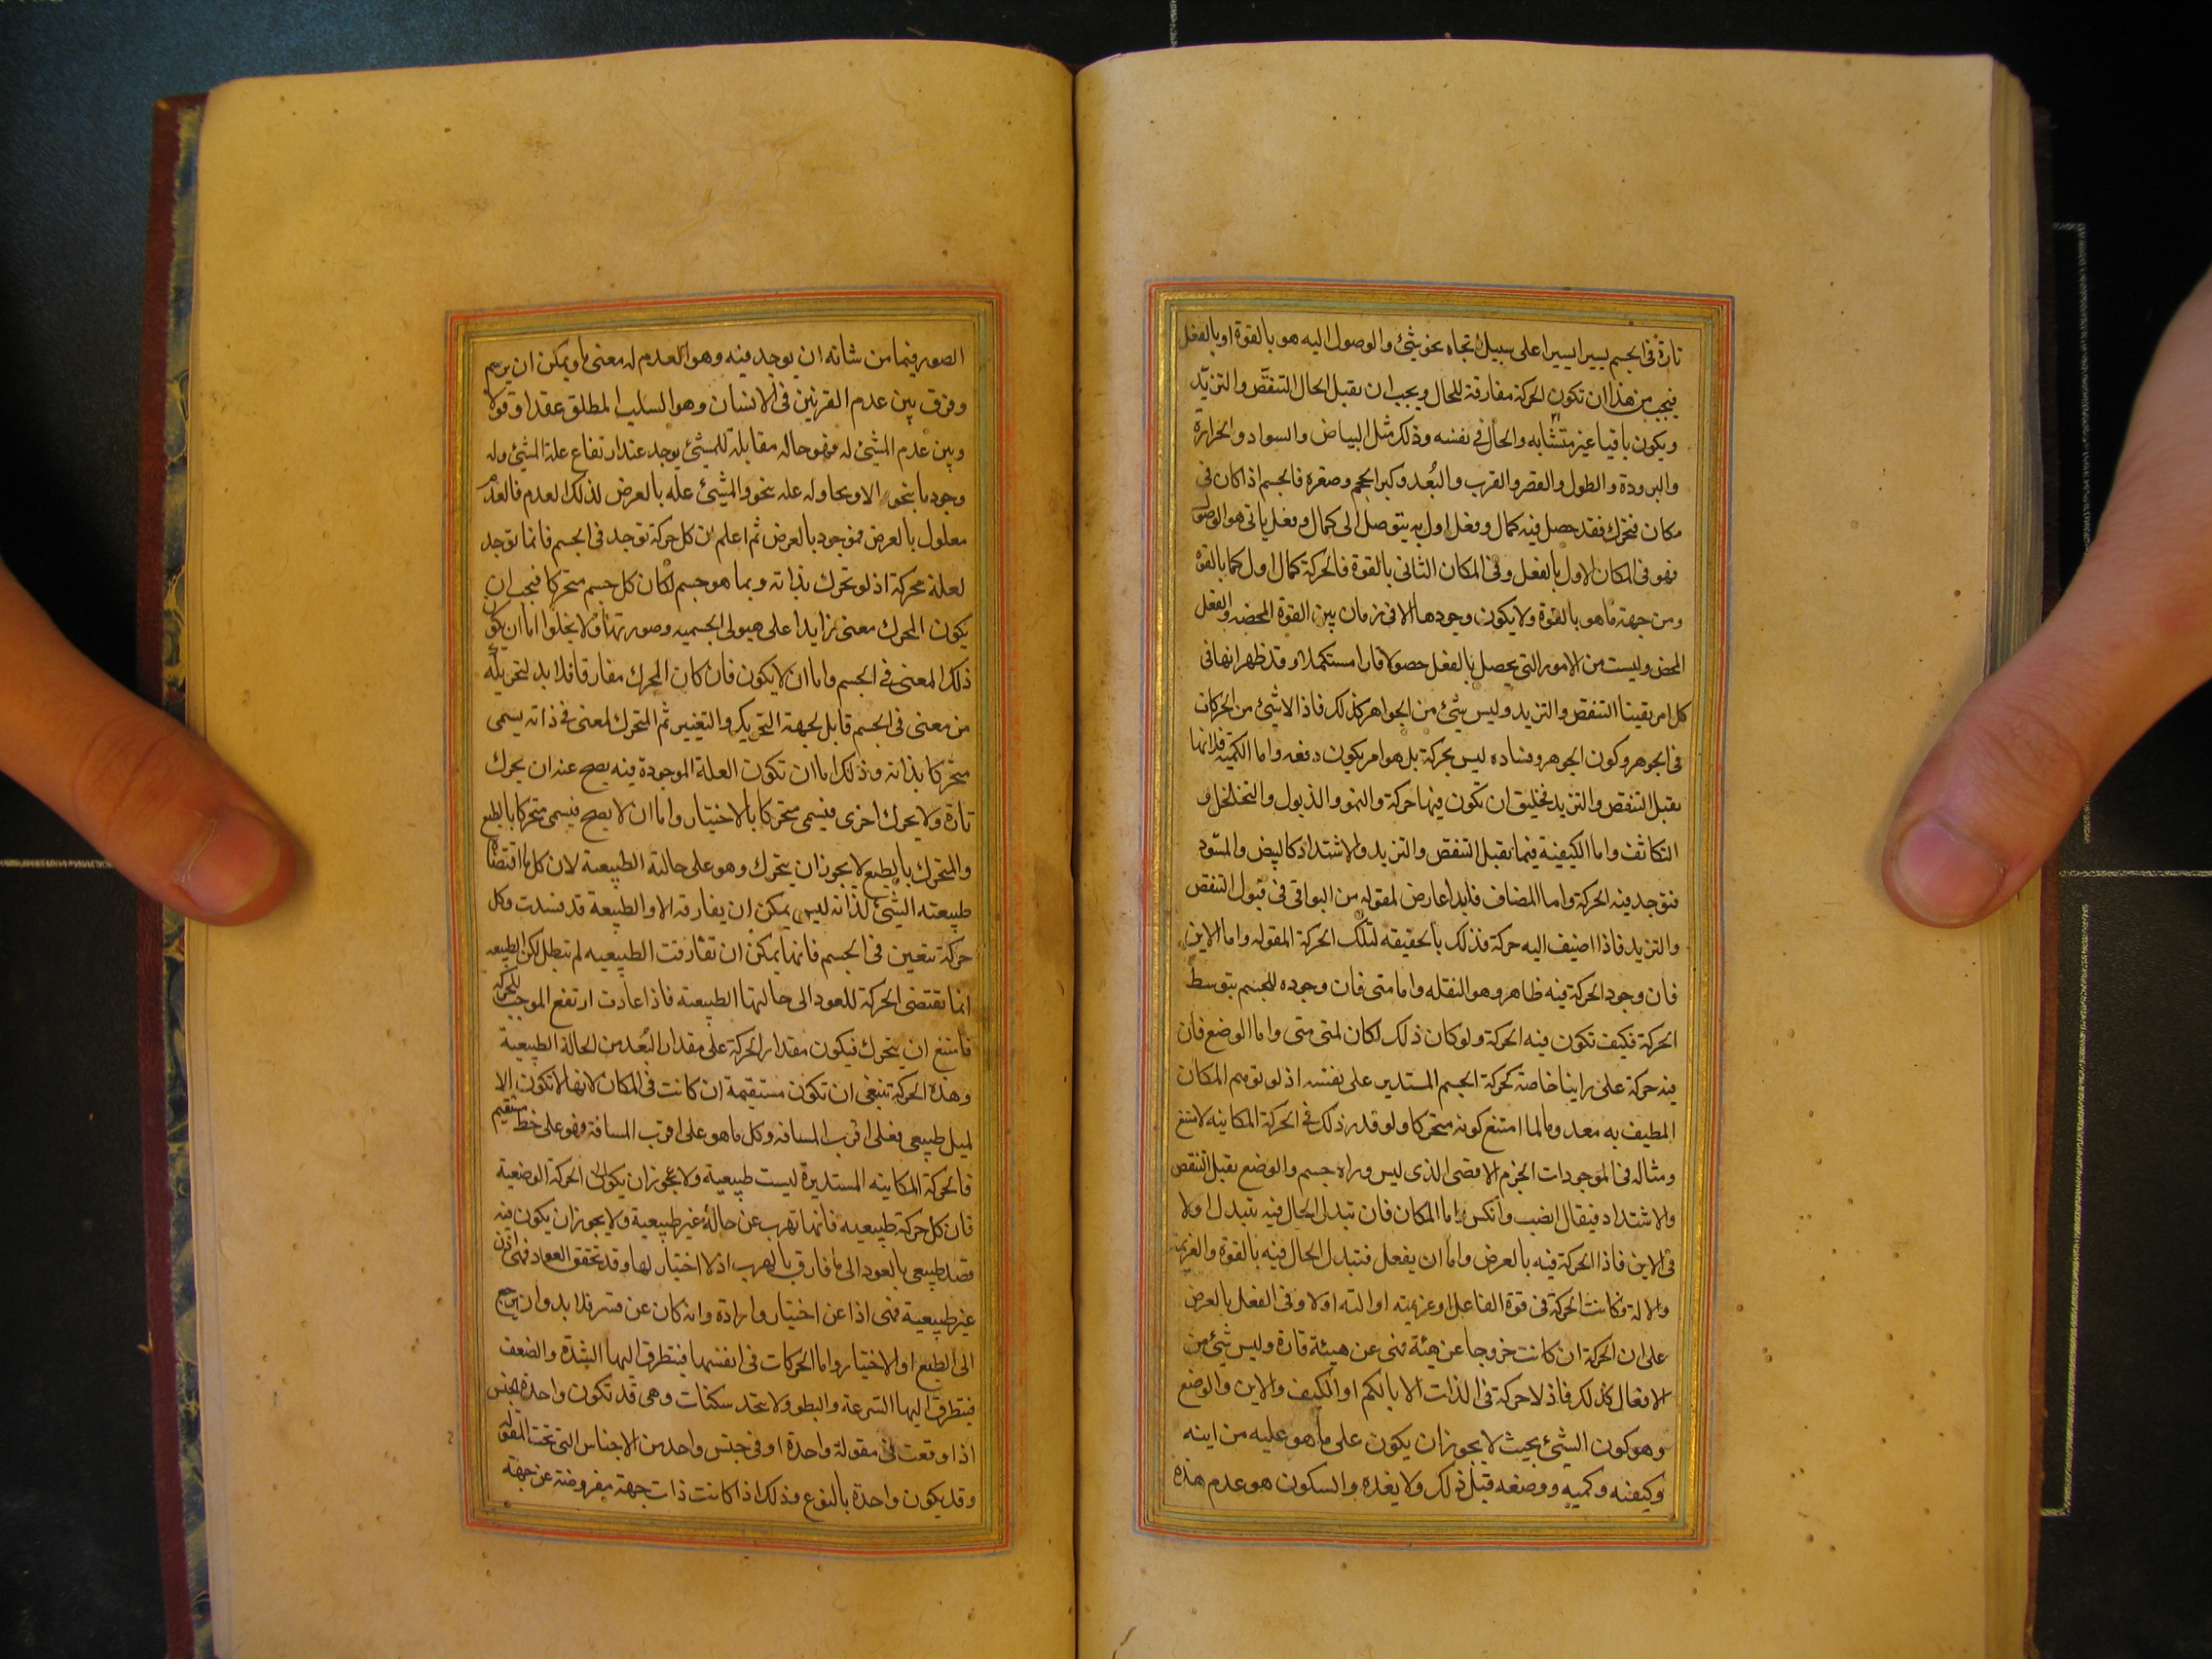 تارة فى الجسم يسيرا يسيرا على سبيل اتجاه نحو شئ والوصول اليه هو بالقوة او بالفعل
فيجب من هذا ان تكون الحركة مفارقة للحال ويجب ان يقبل الحال التنقّص والتزيّد
ويكون باقيا غير متشابه والحال فى نفسه وذلك مثل البياض والسواد والحرارة
والبرودة والطول والقصر والقرب والبُعد وكبر الحجم وصغره فالجسم اذا كان فى
مكان فتحرك فقد حصل فيه كمال وفعل اول به يتوصل الى كمال وفعل ياتى هو الوصول
فهو فى المكان الاول بالفعل وفى المكان الثانى بالقوة فالحركة كمال اول لما بالقوة
ومن جهة ما هو بالقوة ولا يكون وجودها الا فى زمان بين القوة المحضه والفعل
المحض وليست من الامور التى يحصل بالفعل حصولا قارا مستكملا وقد ظهر انها فى
كل امر يقبل التنقص والتزيد وليس شئ من الجواهر كذلك فاذا لا شئ من الحركات
فى الجوهر وكون الجوهر وفساده ليس بحركة بل هو امر يكون دفعه واما الكمية فلانها
يقبل التنقص والتزيد فخليق ان تكون فيها حركة والنمو والذبول والتخلخل و
التكاثف واما الكيفية فيما يقبل التنقص والتزيد والاشتداد كالتبيض والتسود
فتوجد فيه الحركة واما المضاف فابدا عارض لمقوله من البواقى فى قبول التنقص
والتزيد فاذا اضيف اليه حركة فذلك بالحقيقه لتلك الحركة المقوله واما الاين
فان وجود الحركة فيه ظاهر وهو النقله واما متى فان وجوده للجسم بتوسط
الحركة فكيف تكون فيه الحركة ولو كان ذلك لكان لمتى متى واما الوضع فان
فيه حركة على راينا خاصة كحركة الجسم المستدير على نفسه اذ لو توهم المكان
المطيف به معدوما لما امتنع كونه متحركا ولو قدر ذلك فى الحركة المكانيه لامتنع
ومثاله فى الموجودات الجرم الاقصى الذى ليس وراه جسم والوضع يقبل التنقص
والاشتداد فيقال انصب وانكس واما المكان فان تبدل الحال فيه تبدل اولا
فى الاين فاذا الحركة فيه بالعرض واما ان يفعل فتبدل الحال فيه بالقوة والعزيمة
والالة فكانت الحركة فى قوة الفاعل او عزيمته او الته اولا وفى الفعل بالعرض
على ان الحركة ان كانت خروجا عن هيئة فهى عن هيئة قارة وليس شئ من
الافعال كذلك فاذ لا حركة فى الذات الا بالكم او الكيف والاين والوضع
وهو كون الشئ بحيث لا يجوز ان يكون على ما هو عليه من اينه
وكيفه وكميه ووضعه قبل ذلك ولا بعده والسكون هو عدم هذه
الصور فيما من شانه ان يوجد فيه وهو العدم له معنى ما ويمكن ان يرسم
وفرق بين عدم القرنين فى الانسان وهو السلب المطلق عقدا وقولا
وبين عدم المشئ له فهو حاله مقابلة للمشئ يوجد عند ارتفاع علة المشئ وله
وجود ما بنحو الاوبحاوله عله بنحو والمشئ علة بالعرض لذلك العدم فالعدم
معلول بالعرض فموجود بالعرض ثم اعلم ان كل حركة توجد فى الجسم فانما توجد
لعلة محركة اذ لو تحرك بذاته وبما هو جسم لكان كل جسم متحركا فيجب ان
يكون المحرك معنى زايدا على هيولى الجسميه وصورتها ولا يخلوا اما ان يكون
ذلك المعنى فى الجسم واما ان لا يكون فان كان المحرك مفارقا فلا بد لتحريكه
من معنى فى الجسم قابل لجهة التحريك والتغيير ثم المتحرك لمعنى فى ذاته يسمى
متحركا بذاته وذلك اما ان تكون العلة الموجودة فيه يصح عنه ان يحرك
تارة ولا يحرك اخرى فيسمى متحركا بالاختيار واما ان لا يصح فيسمى متحركا بالطبع
والمتحرك بالطبع لا يجوز ان يتحرك وهو على حالته الطبيعية لان كل ما اقتضاه
طبيعته الشئ لذاته ليس يمكن ان يفارقه الا والطبيعة قد فسدت وكل
حركة تتعين فى الجسم فانها يمكن ان تفارقت الطبيعيه لم تبطل لكن الطبيعه
انما تقتضى الحركة للعود الى حالتها الطبيعيه فاذا عادت ارتفع الموجب للحركة
فامتنع ان يتحرك فيكون مقدار الحركة على مقدار البُعد من الحالة الطبيعية
وهذه الحركة تنبغى ان تكون مستقيمة ان كانت فى المكان لانها لا تكون الا
لميل طبيعى فعلى اقرب المسافه وكل ما هو على اقرب المسافة فهو على خط مستقيم
فالحركة المكانيه المستديرة ليست طبيعية ولا يجوز ان يكون الحركة الوضعية
فان كل حركة طبيعيه فانها تهرب عن حالة غير طبيعية ولا يجوز ان يكون فيه
قصد طبيعى بالعود الى ما فارق بالهرب اذ لا اختيار لها وقد تحقق العود فهى اذن
غير طبيعية فهى اذا عن اختيار وارادة وان كان عن قسر فلا بد وان يرجع
الى الطبع او الاختيار واما الحركات فى انفسها فيتطرق اليها الشدة والضعف
فيتطرق اليها السرعة والبطو ولا بتخلل سكنات وهى قد تكون واحدة بالجنس
اذا وقعت فى مقولة واحدة او فى جنس واحد من الاجناس التى تحت المقوله
وقد يكون واحدة بالنوع وذلك اذا كانت ذات جهة مفروضة عن جهة